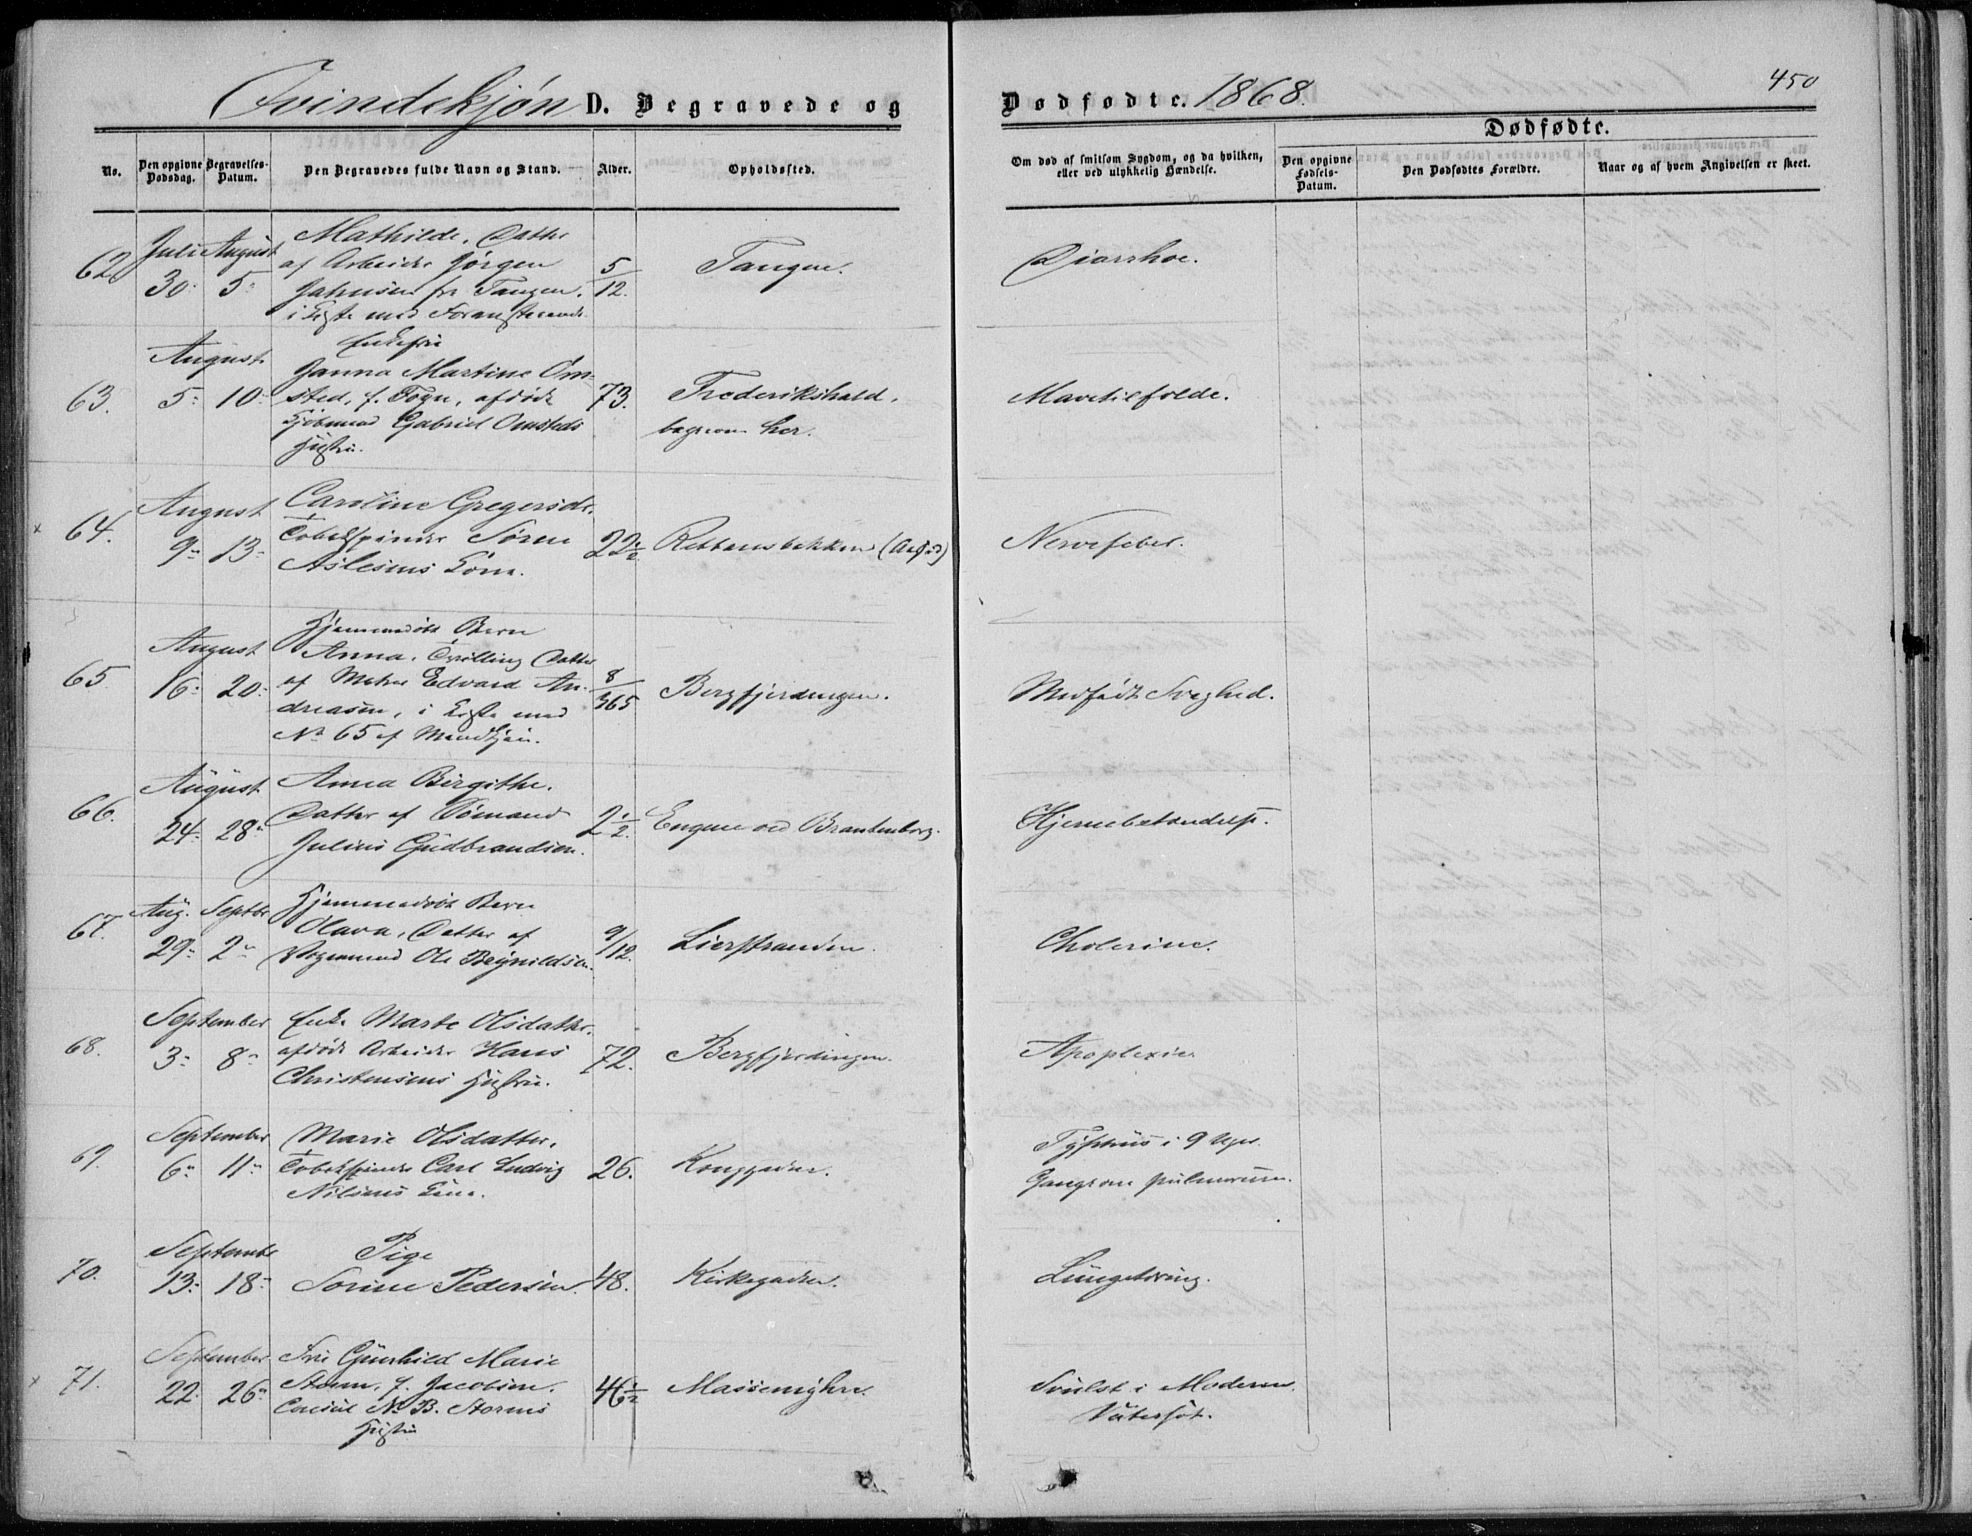 Qvindekjøn D. Begravede og Dødfødte. 1868.
450
No.
Den opgivne Dødsdag.
Begravelses-Datum.
Den Begravedes fulde Navn og Stand.
Alder.
Opholdssted.
Om død af smitsom Sygdom, og da hvilken,
eller ved ulykkelig Hændelse.
Dødfødte.
Den opgivne Fødsels-Datum.
Den Dødfødtes Forældre.
Naar og af hvem Angivelsen er skeet.
62
Juli 30.
August 5.
Mathilde, Datter
af Arbeider Jörgen
fra Tangen.
i Kiste med Foranstaaende.
5/12.
Tangen.
Diarrhoe.
63.
August
5. 10.
Enkefru
Janna Martine Om-
sted, f. Fogn, afdöde
Kjöbmand Gabriel Omsteds
Hustru.
73.
Frederikshald,
begraven her.
Mavetilfælde.
64.
August
9. 13.
Caroline Gregersdr.
Tobakspinder Sören
Aslesens Kone.
22 1/2
Nervefeber.
65.
August
16. 20.
Hjemmedöbt Barn
Anna, Tvilling Datter
af Matros Edvard An-
dreasen, i Kiste med
No 65 af Mandkjön.
8/365
Bergfjerdingen.
Medfødt Svaghed.
66.
August
24. 28.
Anna Birgithe.
Datter af Sömand
Julius Gudbrandsen.
2 1/2.
Engene ved Brantenborg.
Hjernebetændelse.
67.
Aug. 29.
Septbr 2.
Hjemmedöbt Barn
Olava, Datter af
Vognmand Ole Reynildsen.
9/12.
Lierstranden.
Cholerine.
68.
September
3. 8.
Enke Marte Olsdatter.
afdöde Arbeider Hans
Christensens Hustru.
72.
Bergfjerdingen.
Apoplexie.
69.
September
6. 11.
Marie Olsdatter,
Tobakspinder Carl Ludvig
Nilsens Kone.
26.
Konggaden.
Typhus i 9 Uger.
Gangræn pulmonum.
70.
September
13. 18.
Pige
Sorine Pedersen.
48.
Kirkegaden.
Lungetæring.
71.
September
22. 26.
Fru Gunhild Marie
Storm, f. Jacobsen.
Consul N. B. Storms
Hustru
46 1/2
Svulst i Moderen.
Vatersot.